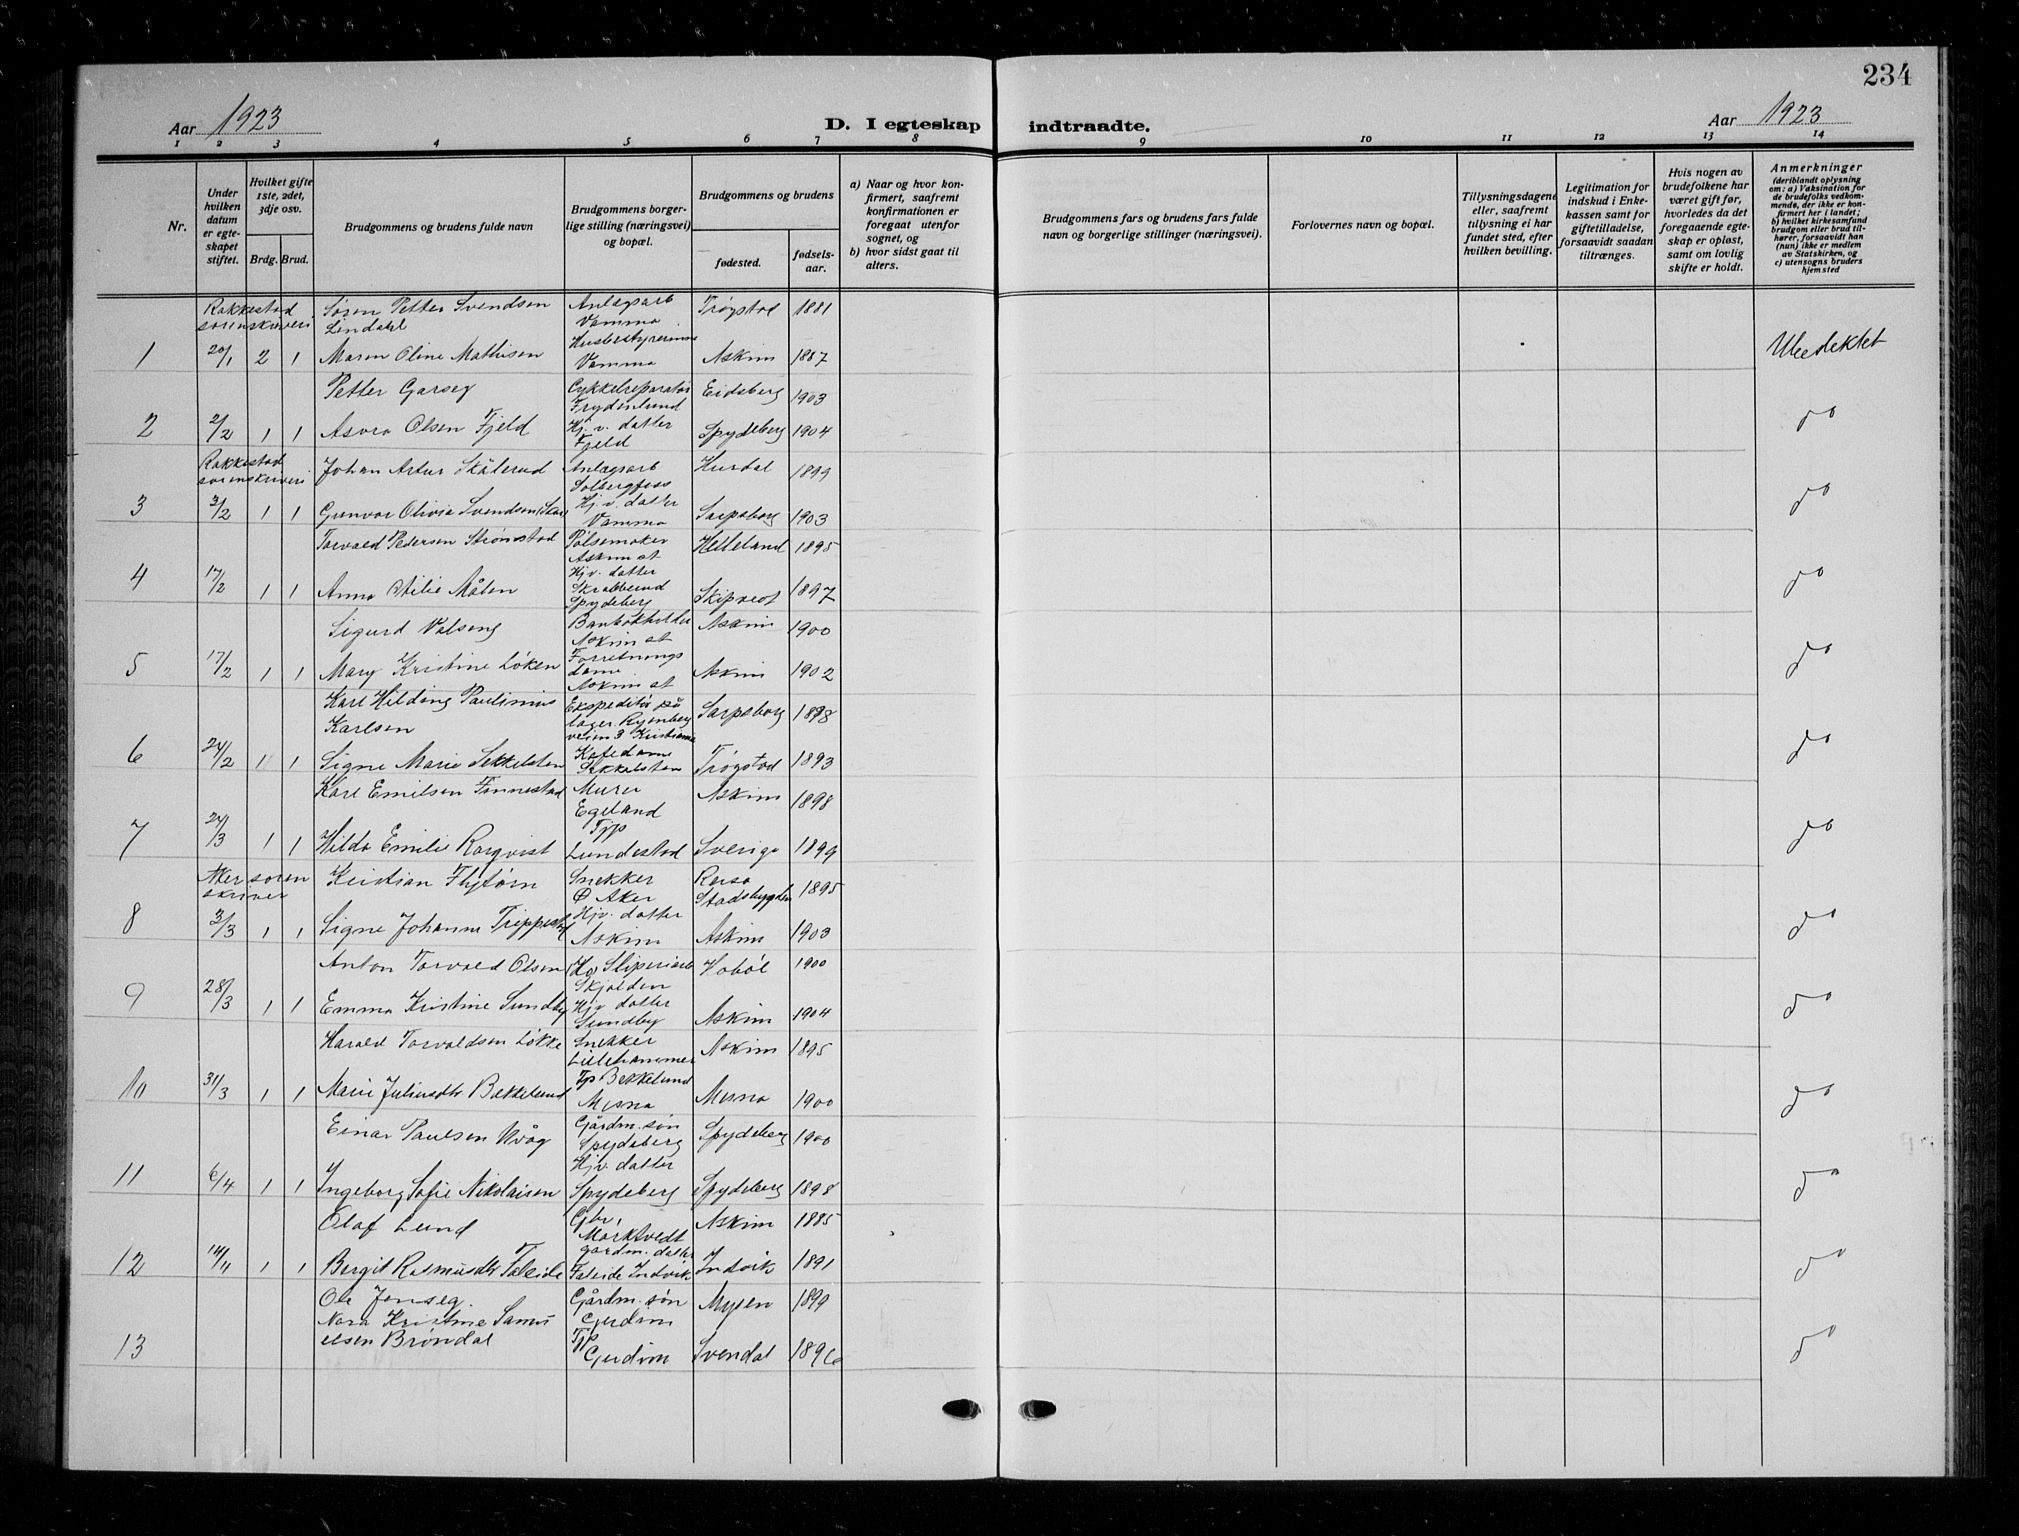 234
Aar 1923
D. I egteskap indtraadte.
Aar 1923
1 2 3 4 5 6 7 8 9 10 11 12 13 14
Nr.
Under hvilken datum er egteskapet stiftet.
Hvilket gifte 1ste, 2det, 3dje osv.
Brdg. Brud.
Brudgommens og brudens fulde navn
Brudgommens borgerlige stilling (næringsvei) og bopæl.
Brudgommens og brudens
fødested.
fødselsaar.
a) Naar og hvor konfirmert, saafremt konfirmationen er foregaat utenfor sognet, og
b) hvor sidst gaat til alters.
Brudgommens fars og brudens fars fulde navn og borgerlige stillinger (næringsvei).
Forlovernes navn og bopæl.
Tillysningsdagene eller, saafremt tillysning ei har fundet sted, efter hvilken bevilling.
Legitimation for indskud i Enkekassen samt for giftetilladelse, forsaavidt saadan tiltrænges.
Hvis nogen av brudefolkene har været gift før, hvorledes da det foregaaende egteskap er opløst, samt om lovlig skifte er holdt.
Anmerkninger
(deriblandt oplysning om: a) Vaksination for de brudefolks vedkommende, der ikke er konfirmert her i landet; b) hvilket kirkesamfund brudgom eller brud tilhører, forsaavidt han (hun) ikke er medlem av Statskirken, og c) utensogns bruders hjemsted
Rakkestad sorenskriveri
Søren Petter Svendsen Lindahl Anlægsarb Vamma Trøgstad 1881
1 20/1 2 1 Maren Oline Mathisen Husbestyrerinne Vamma Askim 1887
Petter Garseg Cykkelreparatør Frydenlund Eidsberg 1903
2 2/2 1 1 Asvra Olsen Fjeld Hj. v. datter Fjeld Spydeberg 1904 do
Rakkestad sorenskriveri
Johan Artur Skålerud Anlægsarb Solbergfoss Hurdal 1899
3 3/2 1 1 Gunvor Olivia Svendsen Hj. v. datter Vamma Sarpsborg 1903 do
Torvald Pedersen Strømstad Pølsemaker Askim st Helleland 1895
4 17/2 1 1 Anna Målen Hjv. datter Skrabberud Spydeberg Skiptvet 1897 do
Sigurd Valseng Bankbokholder Askim st Askim 1900
5 17/2 1 1 Mary Kristine Løken Forretnings dame Askim st Askim 1902 do
Karl Hilding Paulinius Karlsen Ekspeditør på lager veien 3 Kristiania Sarpsborg 1898
6 24/2 1 1 Signe Marie Sekkelsten Kafedame Sekkelsten Trøgstad 1893 do
Karl Emilsen Finnestad Murer Egeland Askim 1898
7 24/3 1 1 Hilda Emilie Rorqvist Tjp Lundestad Sverige 1899 do
Aker sorenskriver
Kristian Flytørn Snekker Ø Aker Rersa Stadsbygden 1895
8 3/3 1 1 Signe Johanne Trippestad Hjv. datter Askim Askim 1903 do
Anton Torvald Olsen Sliperiarb Skjolden Hobøl 1900
9 28/3 1 1 Emma Kristine Sundby Hjv datter Sundby Askim 1904 do
Harald Torvaldsen Løkke Snekker Lillehammer Askim 1895
10 31/3 1 1 Marie Juliusdtr Bakkelund Tp Bekkelund Mesna Mesna 1900 do
Einar Paulsen Kråg Gårdm. søn Spydeberg Spydeberg 1900
11 6/4 1 1 Ingeborg Sofie Nikolaisen Hjv. datter Spydeberg Spydeberg 1898 do
Olaf Lund Gbr, Marktvedt Askim 1885
12 14/11 1 1 Bergit Rasmusdtr Faleide gardm. datter Faleide Indvik Indvik 1891 do
Ole Jenseg. Gårdm. søn Gjerdim Mysen 1899
13 Nora Kristine Samuelsen Brøndal Tjp Gjerdim Svendal 1896 do